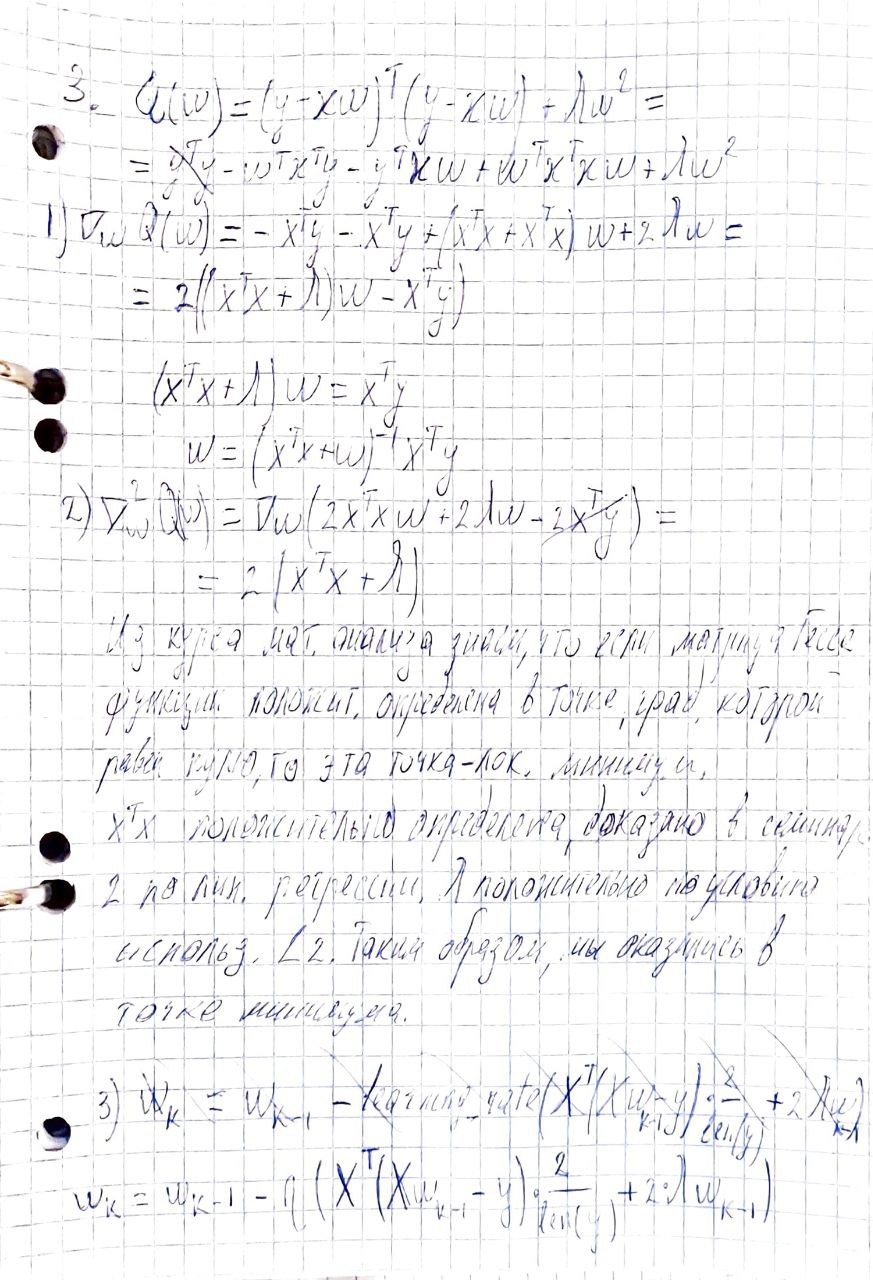 3. Q(w) = (y - xw)^T (y - xw) + λw^2 =
= y^Ty - w^Tx^Ty - y^Txw + w^Tx^Txw + λw^2
1) ∇_w Q(w) = - x^Ty - x^Ty + (x^Tx + x^Tx) w + 2λw =
= 2((x^Tx + λ)w - x^Ty)
(x^Tx + λ) w = x^Ty
w = (x^Tx + w)^{-1} x^Ty
2) ∇_w^2 Q(w) = ∇_w (2x^Txw + 2λw - 2x^Ty) =
= 2 (x^Tx + λ)
Из курса мат. анализа знаем, что если матрица Гессе
функции положит. определена в точке, град. которой
равен нулю, то эта точка - лок. минимум.
x^Tx положительно определена, доказано в семинар
2 по лин. регрессии, λ положительно по условию
использ. L2. Таким образом, мы оказались в
точке минимума.
3) w_k = w_{k-1} - learning_rate(X^T(Xw_{k-1} - y) · 2/len(y) + 2λw_{k-1})
w_k = w_{k-1} - η (X^T(Xw_{k-1} - y) · 2/len(y) + 2·λw_{k-1})